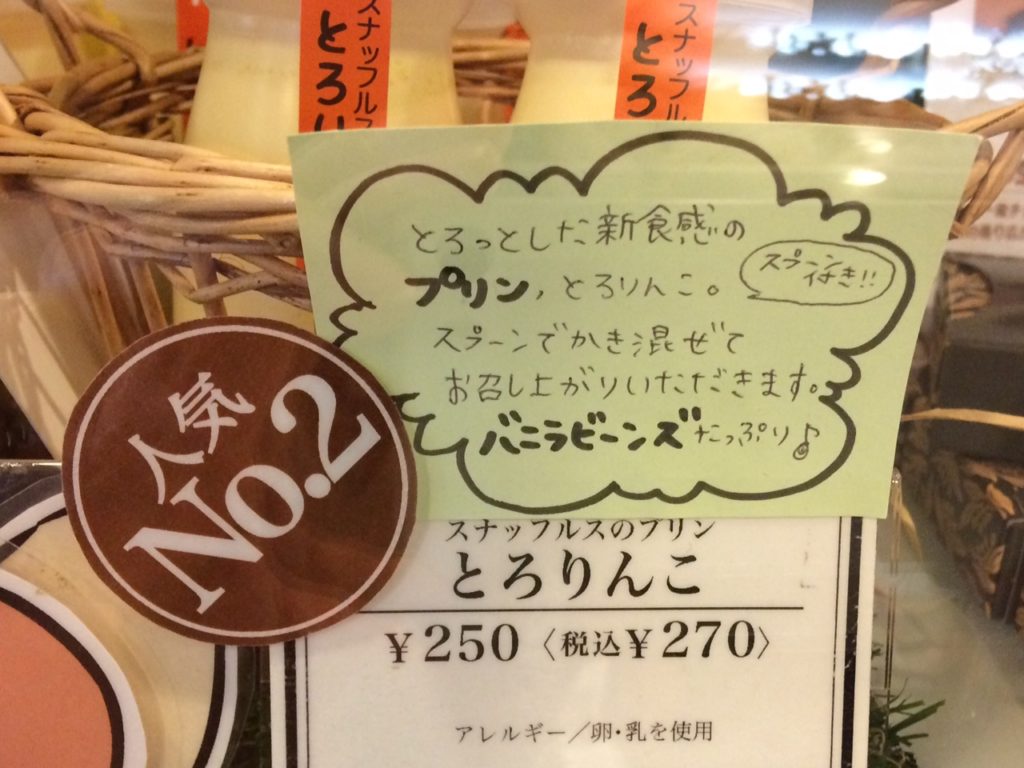 スナッフルス
とろり
スナッフル
とろ
とろっとした新食感の
プリン、とろりんこ。
スプーン
付き!!
スプーンでかき混ぜて
お召し上がりいただきます。
バニラビーンズたっぷり♪
人気
No.2
スナッフルスのプリン
とろりんこ
¥250〈税込¥270〉
アレルギー／卵・乳を使用